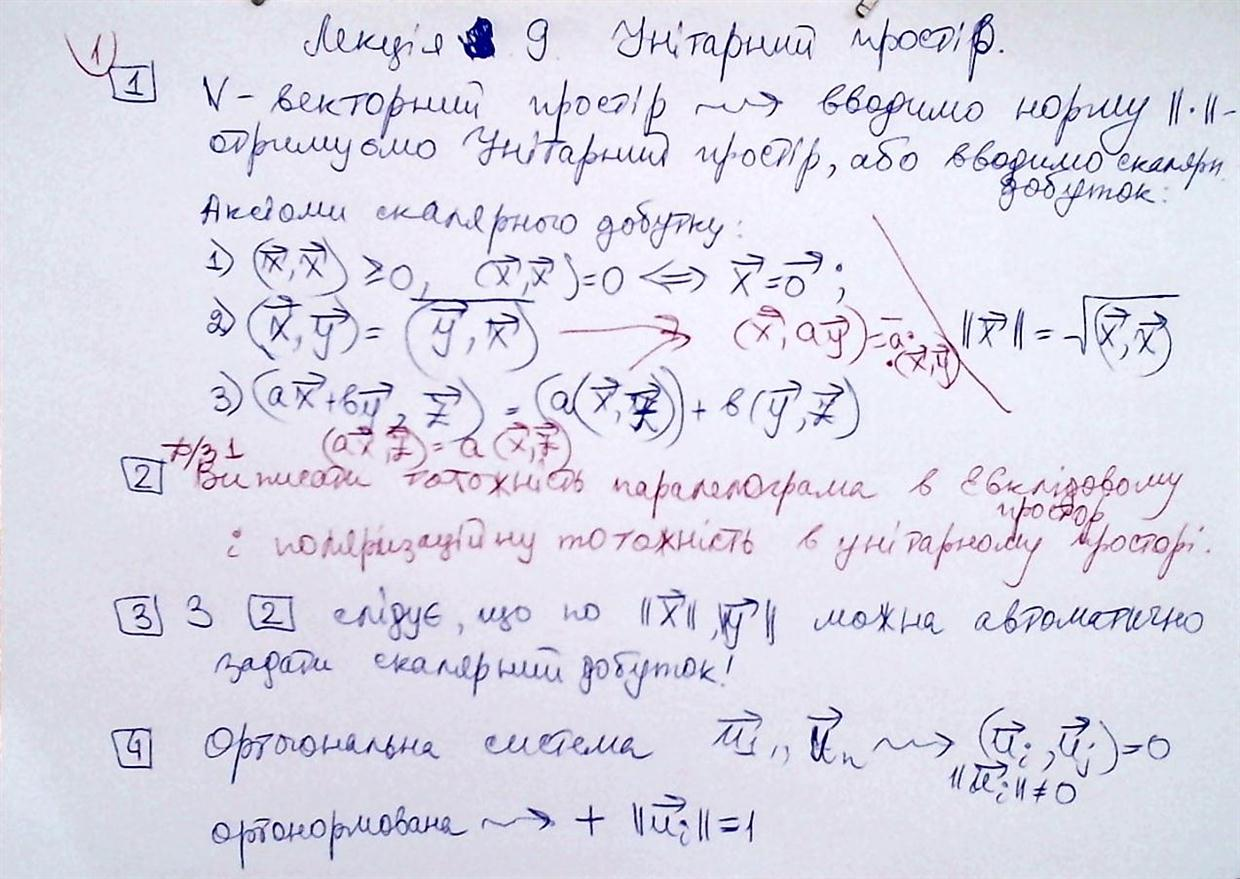 1
Лекція 9 Унітарний простір.
1 V – векторний простір ⇝ вводимо норму ||·|| –
отримуємо Унітарний простір, або вводимо скалярн.
добуток:
Аксіоми скалярного добутку:
1) (x⃗, x⃗) ≥ 0, (x⃗, x⃗) = 0 ⇔ x⃗ = 0⃗ ;
2) (x⃗, y⃗) = \overline{(y⃗, x⃗)} → (x⃗, ay⃗) = a̅· ||x⃗|| = √(x⃗, x⃗)
·(x⃗, y⃗)
3) (ax⃗ + вy⃗, z⃗) = (a(x⃗, z⃗)) + в(y⃗, z⃗)
Д/з 1 (ax⃗, z⃗) = a(x⃗, z⃗)
2 Виписати тотожність паралелограма в Евклідовому
просторі
і поляризаційну тотожність в унітарному просторі.
3 З 2 слідує, що по ||x⃗||, ||y⃗|| можна автоматично
задати скалярний добуток!
4 Ортогональна система u⃗₁,, u⃗ₙ ⇝ (u⃗ᵢ, u⃗ⱼ) = 0
||u⃗ᵢ|| ≠ 0
ортонормована ⇝ + ||u⃗ᵢ|| = 1